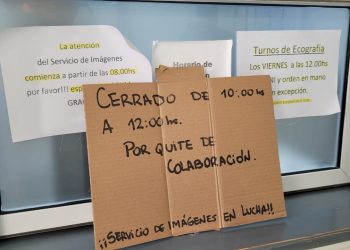 La atención
del Servicio de Imágenes
comienza a partir de las 08.00hs
por favor!!!
GRA
Horario de
Turnos de Ecografía
Los VIERNES a las 12.00hs
NI y orden en mano
excepción.
CERRADO DE 10:00 HS
A 12:00 HS.
POR QUITE DE
COLABORACIÓN.
¡¡SERVICIO DE IMÁGENES EN LUCHA!!